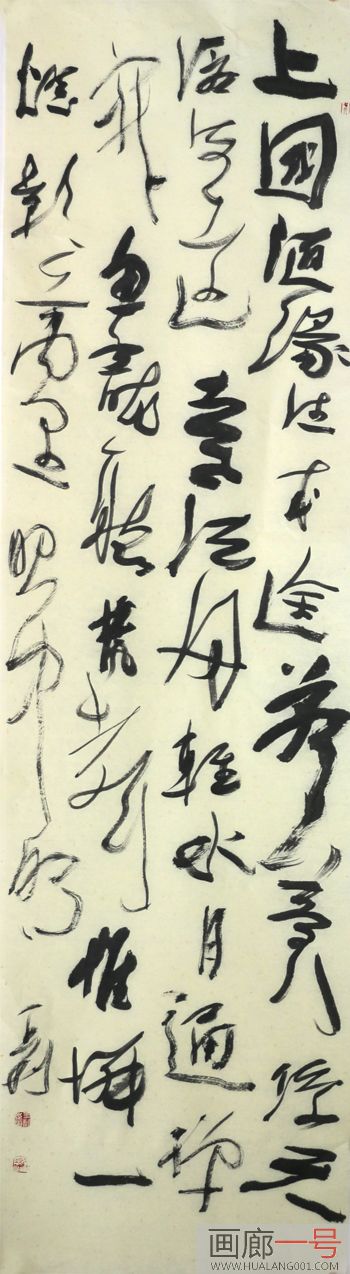 上國随緣住来途若夢行浮天
滄海遠去世法舟輕水月通禅
寂魚龍聽梵聲惟憐一
燈影萬里眼中明
画廊一号
WWW.HUALANG001.COM